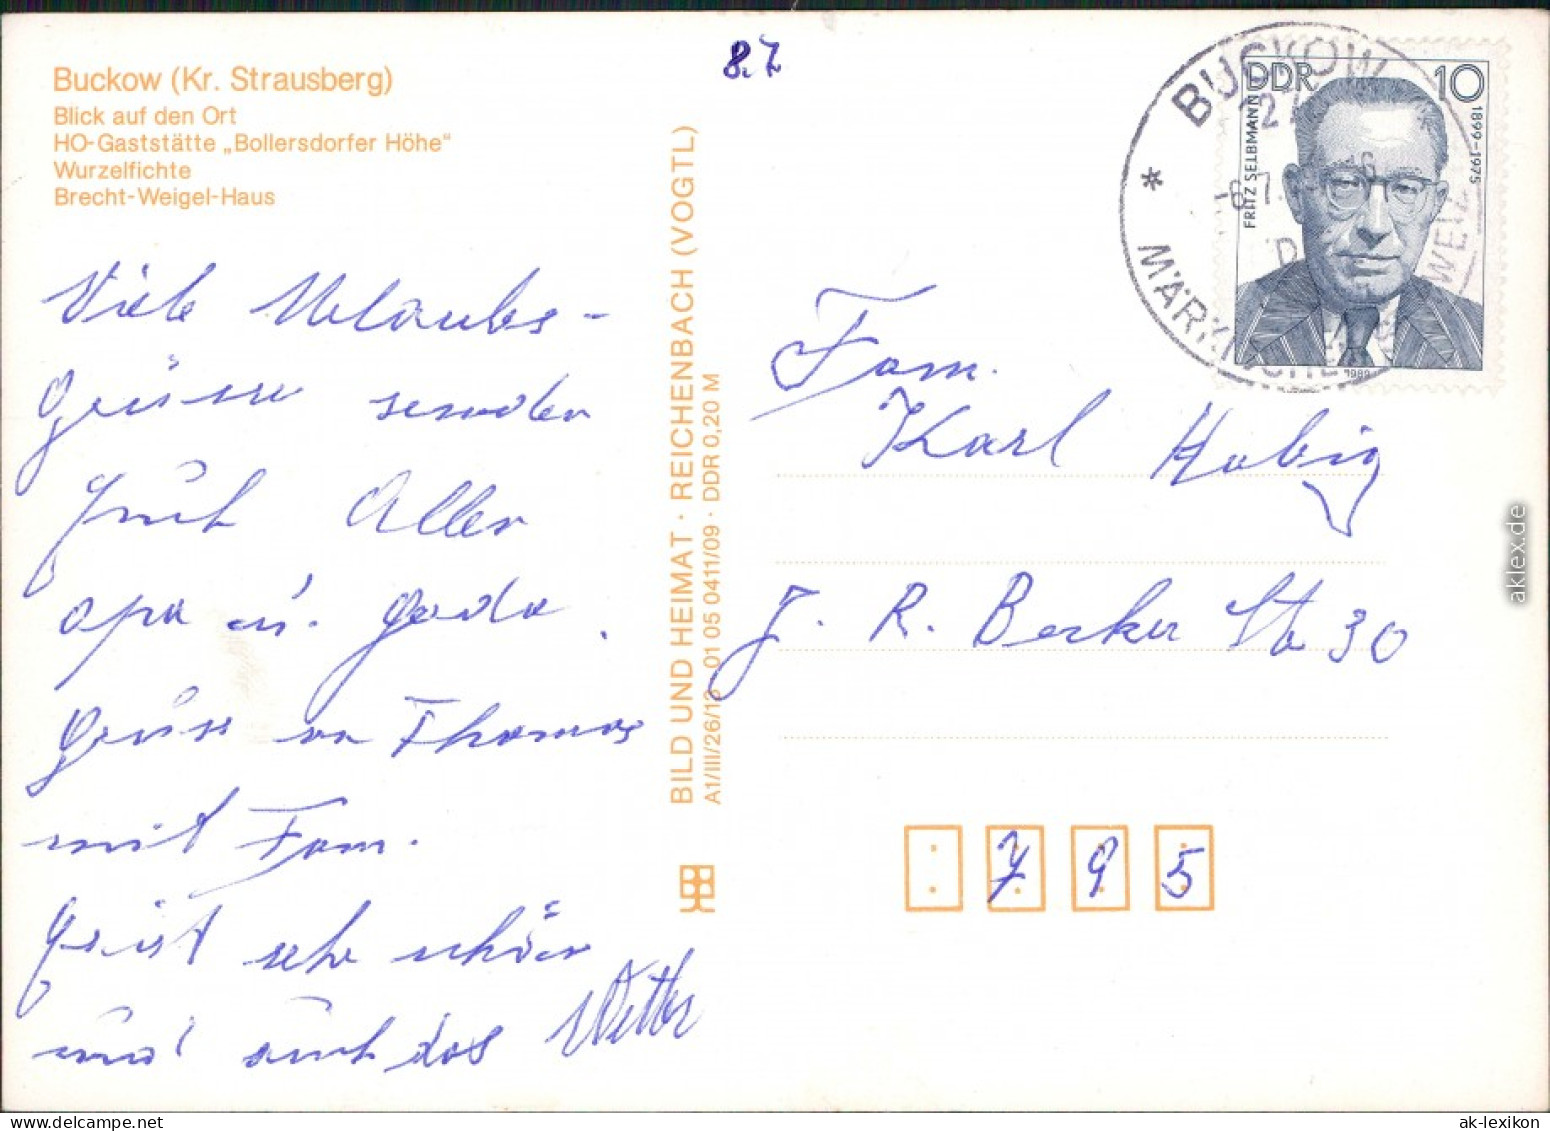 Buckow (Kr. Strausberg)
Blick auf den Ort
HO-Gaststätte „Bollersdorfer Höhe"
Wurzelfichte
Brecht-Weigel-Haus
Viele Urlaubs-
Grüsse senden
Euch Allen
Opa u. Gerda.
Gruss an Thomas
mit Fam.
Es ist sehr schön
und auch das Wetter
8.7
BILD UND HEIMAT · REICHENBACH (VOGTL)
A1/III/26/13 01 05 0411/09 · DDR 0,20 M
BUCKOW
MÄRKISCHE
DDR 10
FRITZ SELBMANN
1899-1975
1989
Fam.
Karl Habig
J. R. Becker Str 30
7 9 5
aklex.de
ak-lexikon.de